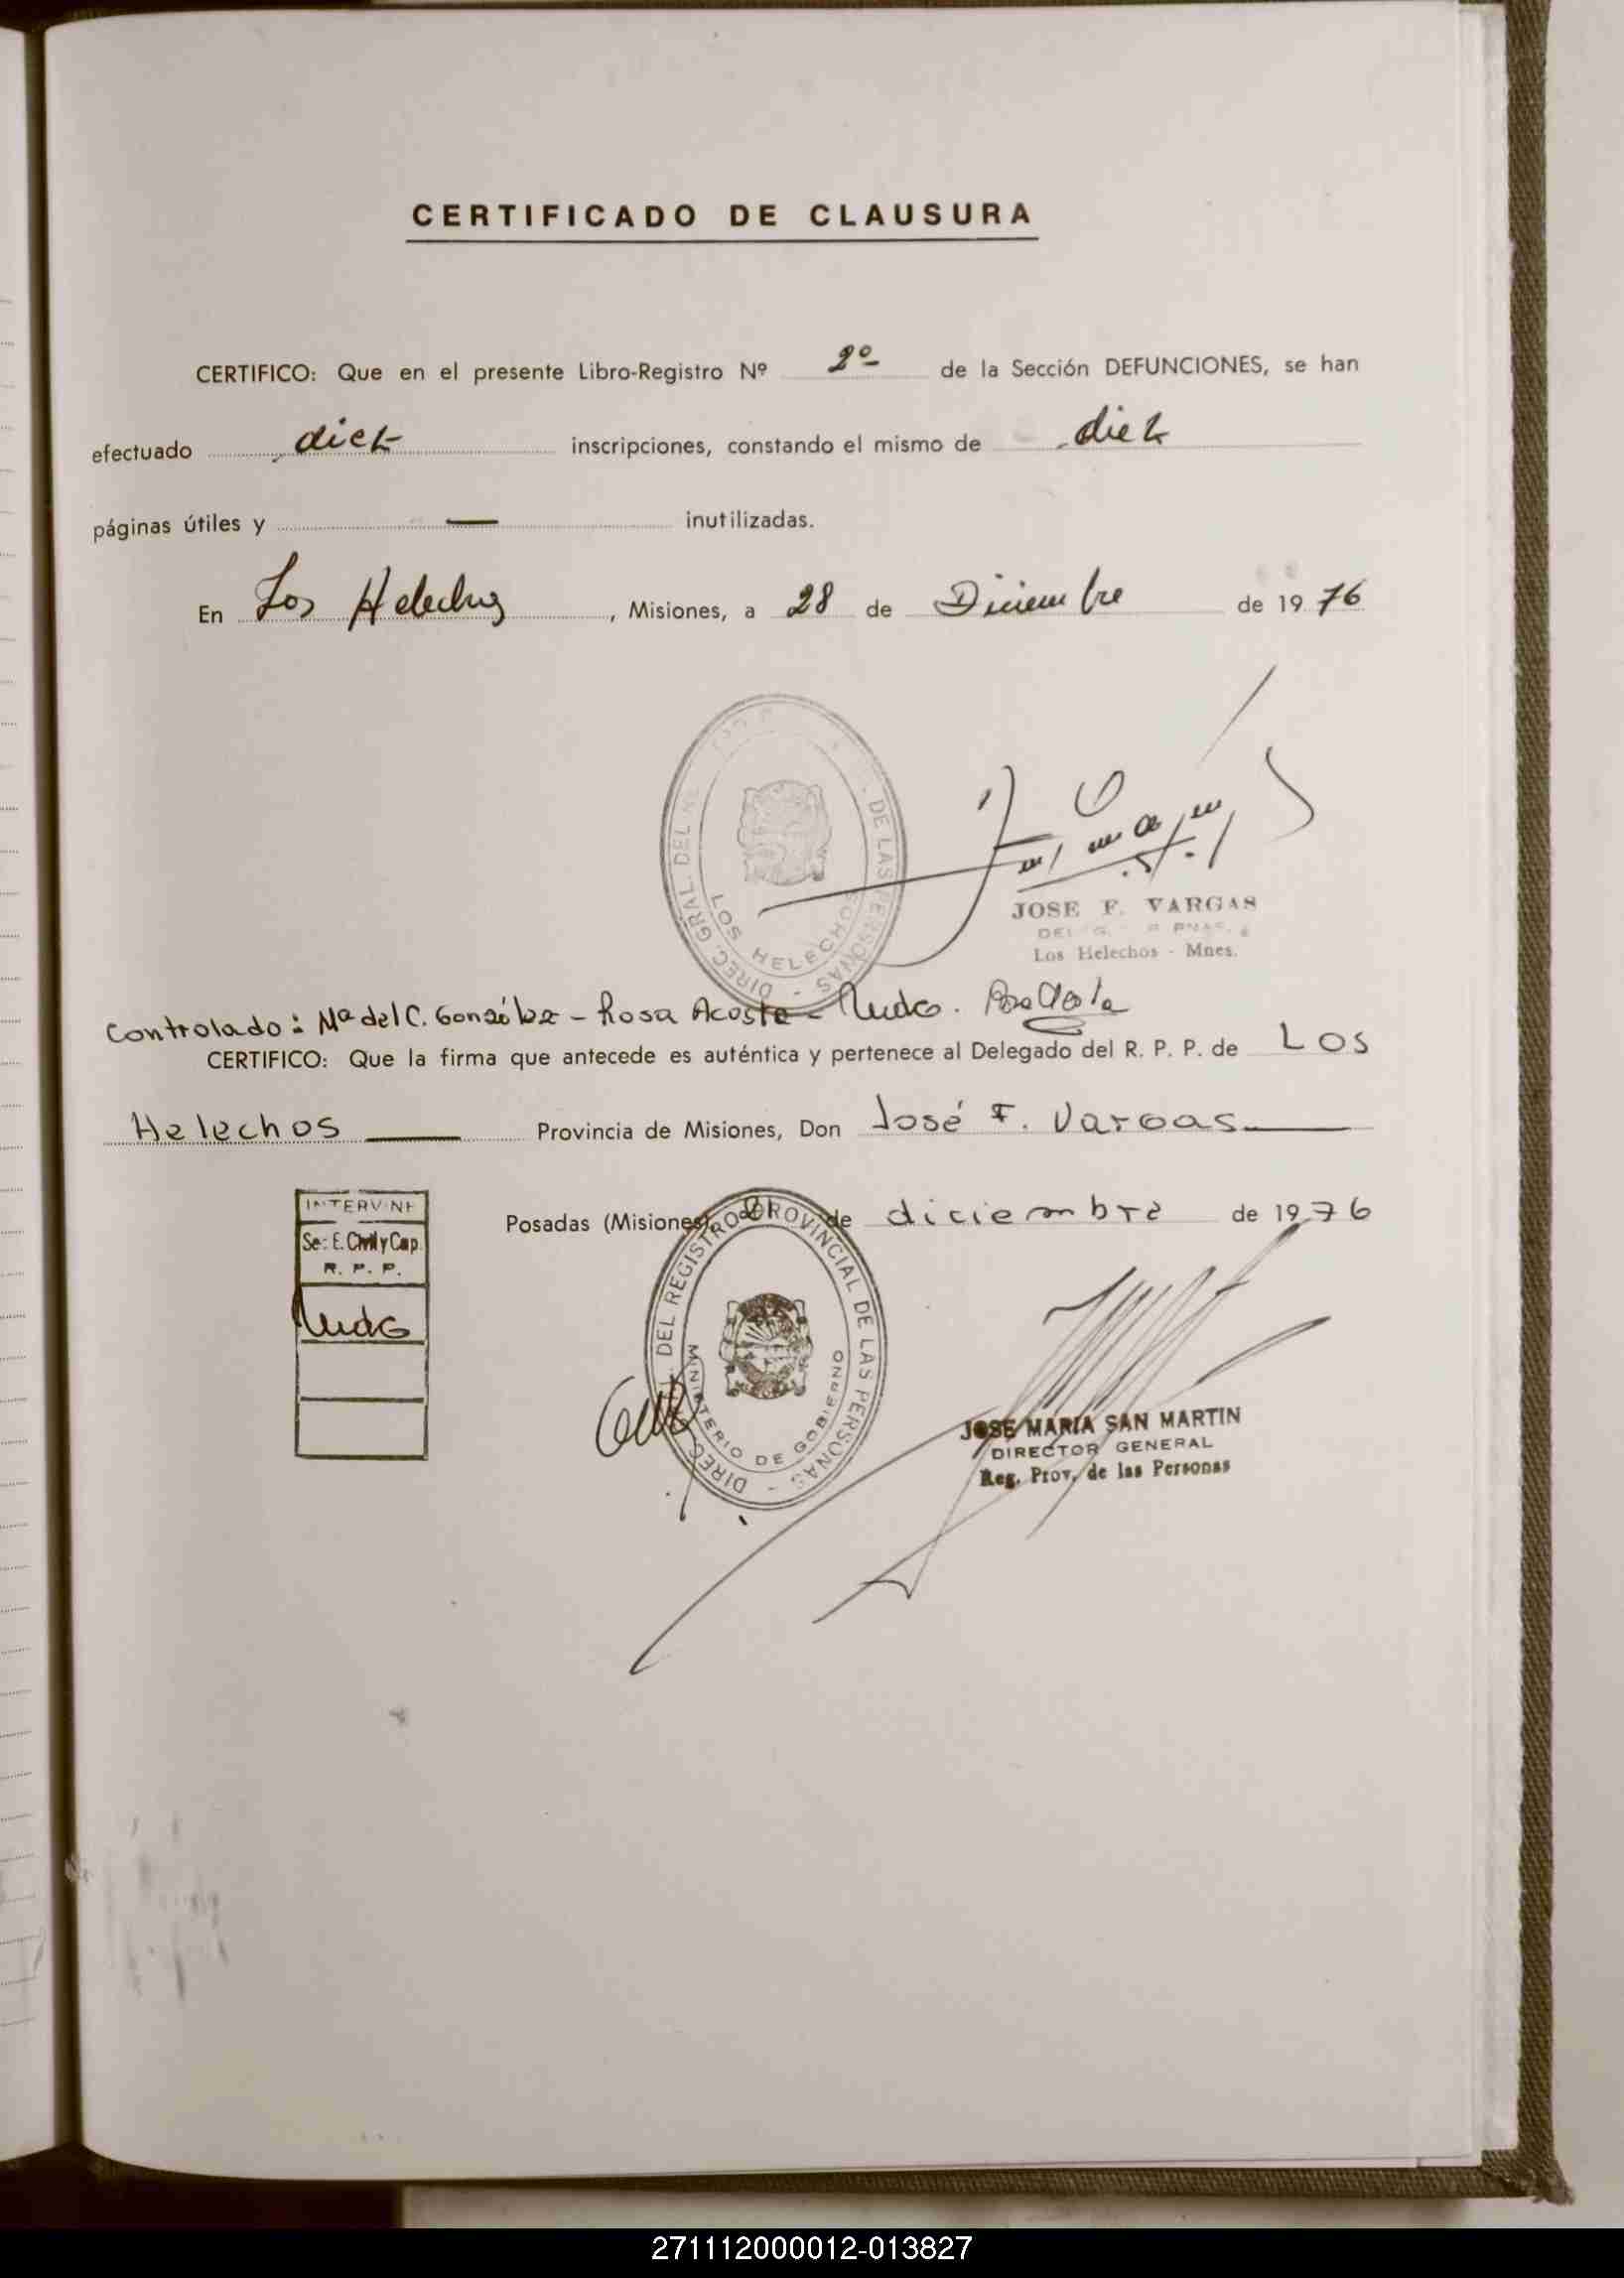 CERTIFICADO DE CLAUSURA
CERTIFICO: Que en el presente Libro-Registro Nº 2º de la Sección DEFUNCIONES, se han
efectuado diez inscripciones, constando el mismo de diez
páginas útiles y — inutilizadas.
En Los Helechos, Misiones, a 28 de Diciembre de 1976
DIREC. GRAL. DEL DE LAS PERSONAS
LOS HELECHOS
JOSE F. VARGAS
Los Helechos - Mnes.
Controlado: Mª del C. González - Rosa Acosta -
CERTIFICO: Que la firma que antecede es auténtica y pertenece al Delegado del R. P. P. de Los
Helechos Provincia de Misiones, Don José F. Vargas
INTERVINE
Sec. E. Civil y Cap.
R. P. P.
Posadas (Misiones), de diciembre de 1976
DIREC. DEL REGISTRO PROVINCIAL DE LAS PERSONAS
MINISTERIO DE GOBIERNO
JOSE MARIA SAN MARTIN
DIRECTOR GENERAL
Reg. Prov. de las Personas
271112000012-013827